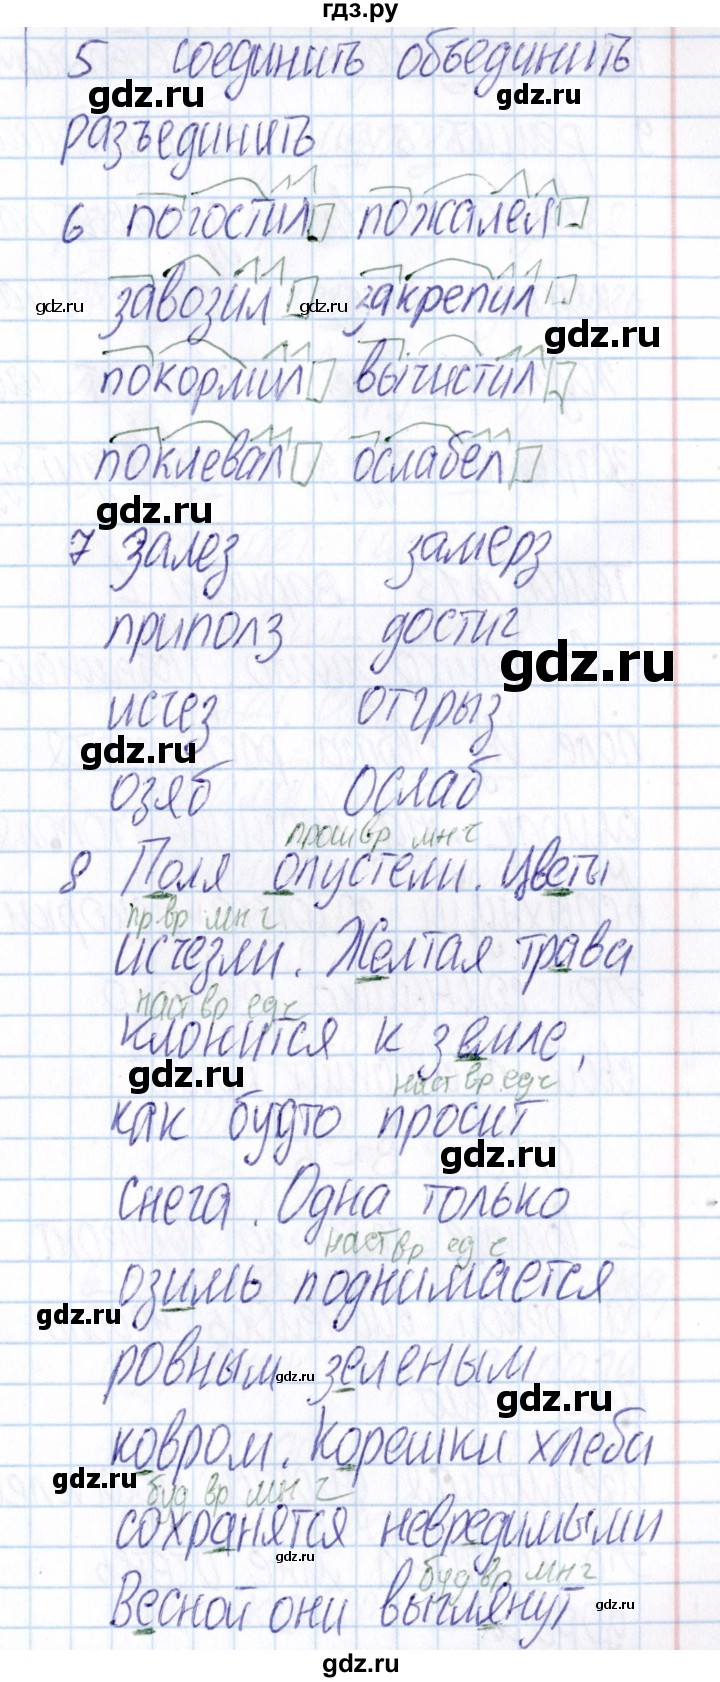 гдз.ру
5 соединить объединить
gdz.ru gdz.ru
разъединить
6 погостил пожалел
завозил закрепил
gdz.ru gdz.ru
gdz.ru
покормил вычистил
поклевал ослабел
gdz.ru
7 Залез замёрз
приполз достиг
gdz.ru
исчез отгрыз
gdz.ru
озяб ослаб
прош вр мн ч
8 Поля опустели. Цветы
пр вр мн ч
исчезли. Желтая трава
наст вр ед ч
клонится к земле,
gdz.ru
наст вр ед ч
как будто просит
gdz.ru
снега. Одна только
наст вр ед ч
озимь поднимается
gdz.ru
ровным зеленым
gdz.ru
gdz.ru
ковром. Корешки хлеба
gdz.ru
буд вр мн ч
сохранятся невредимыми
gdz.ru
буд вр мн ч
Весной они выглянут
gdz.ru
gdz.ru